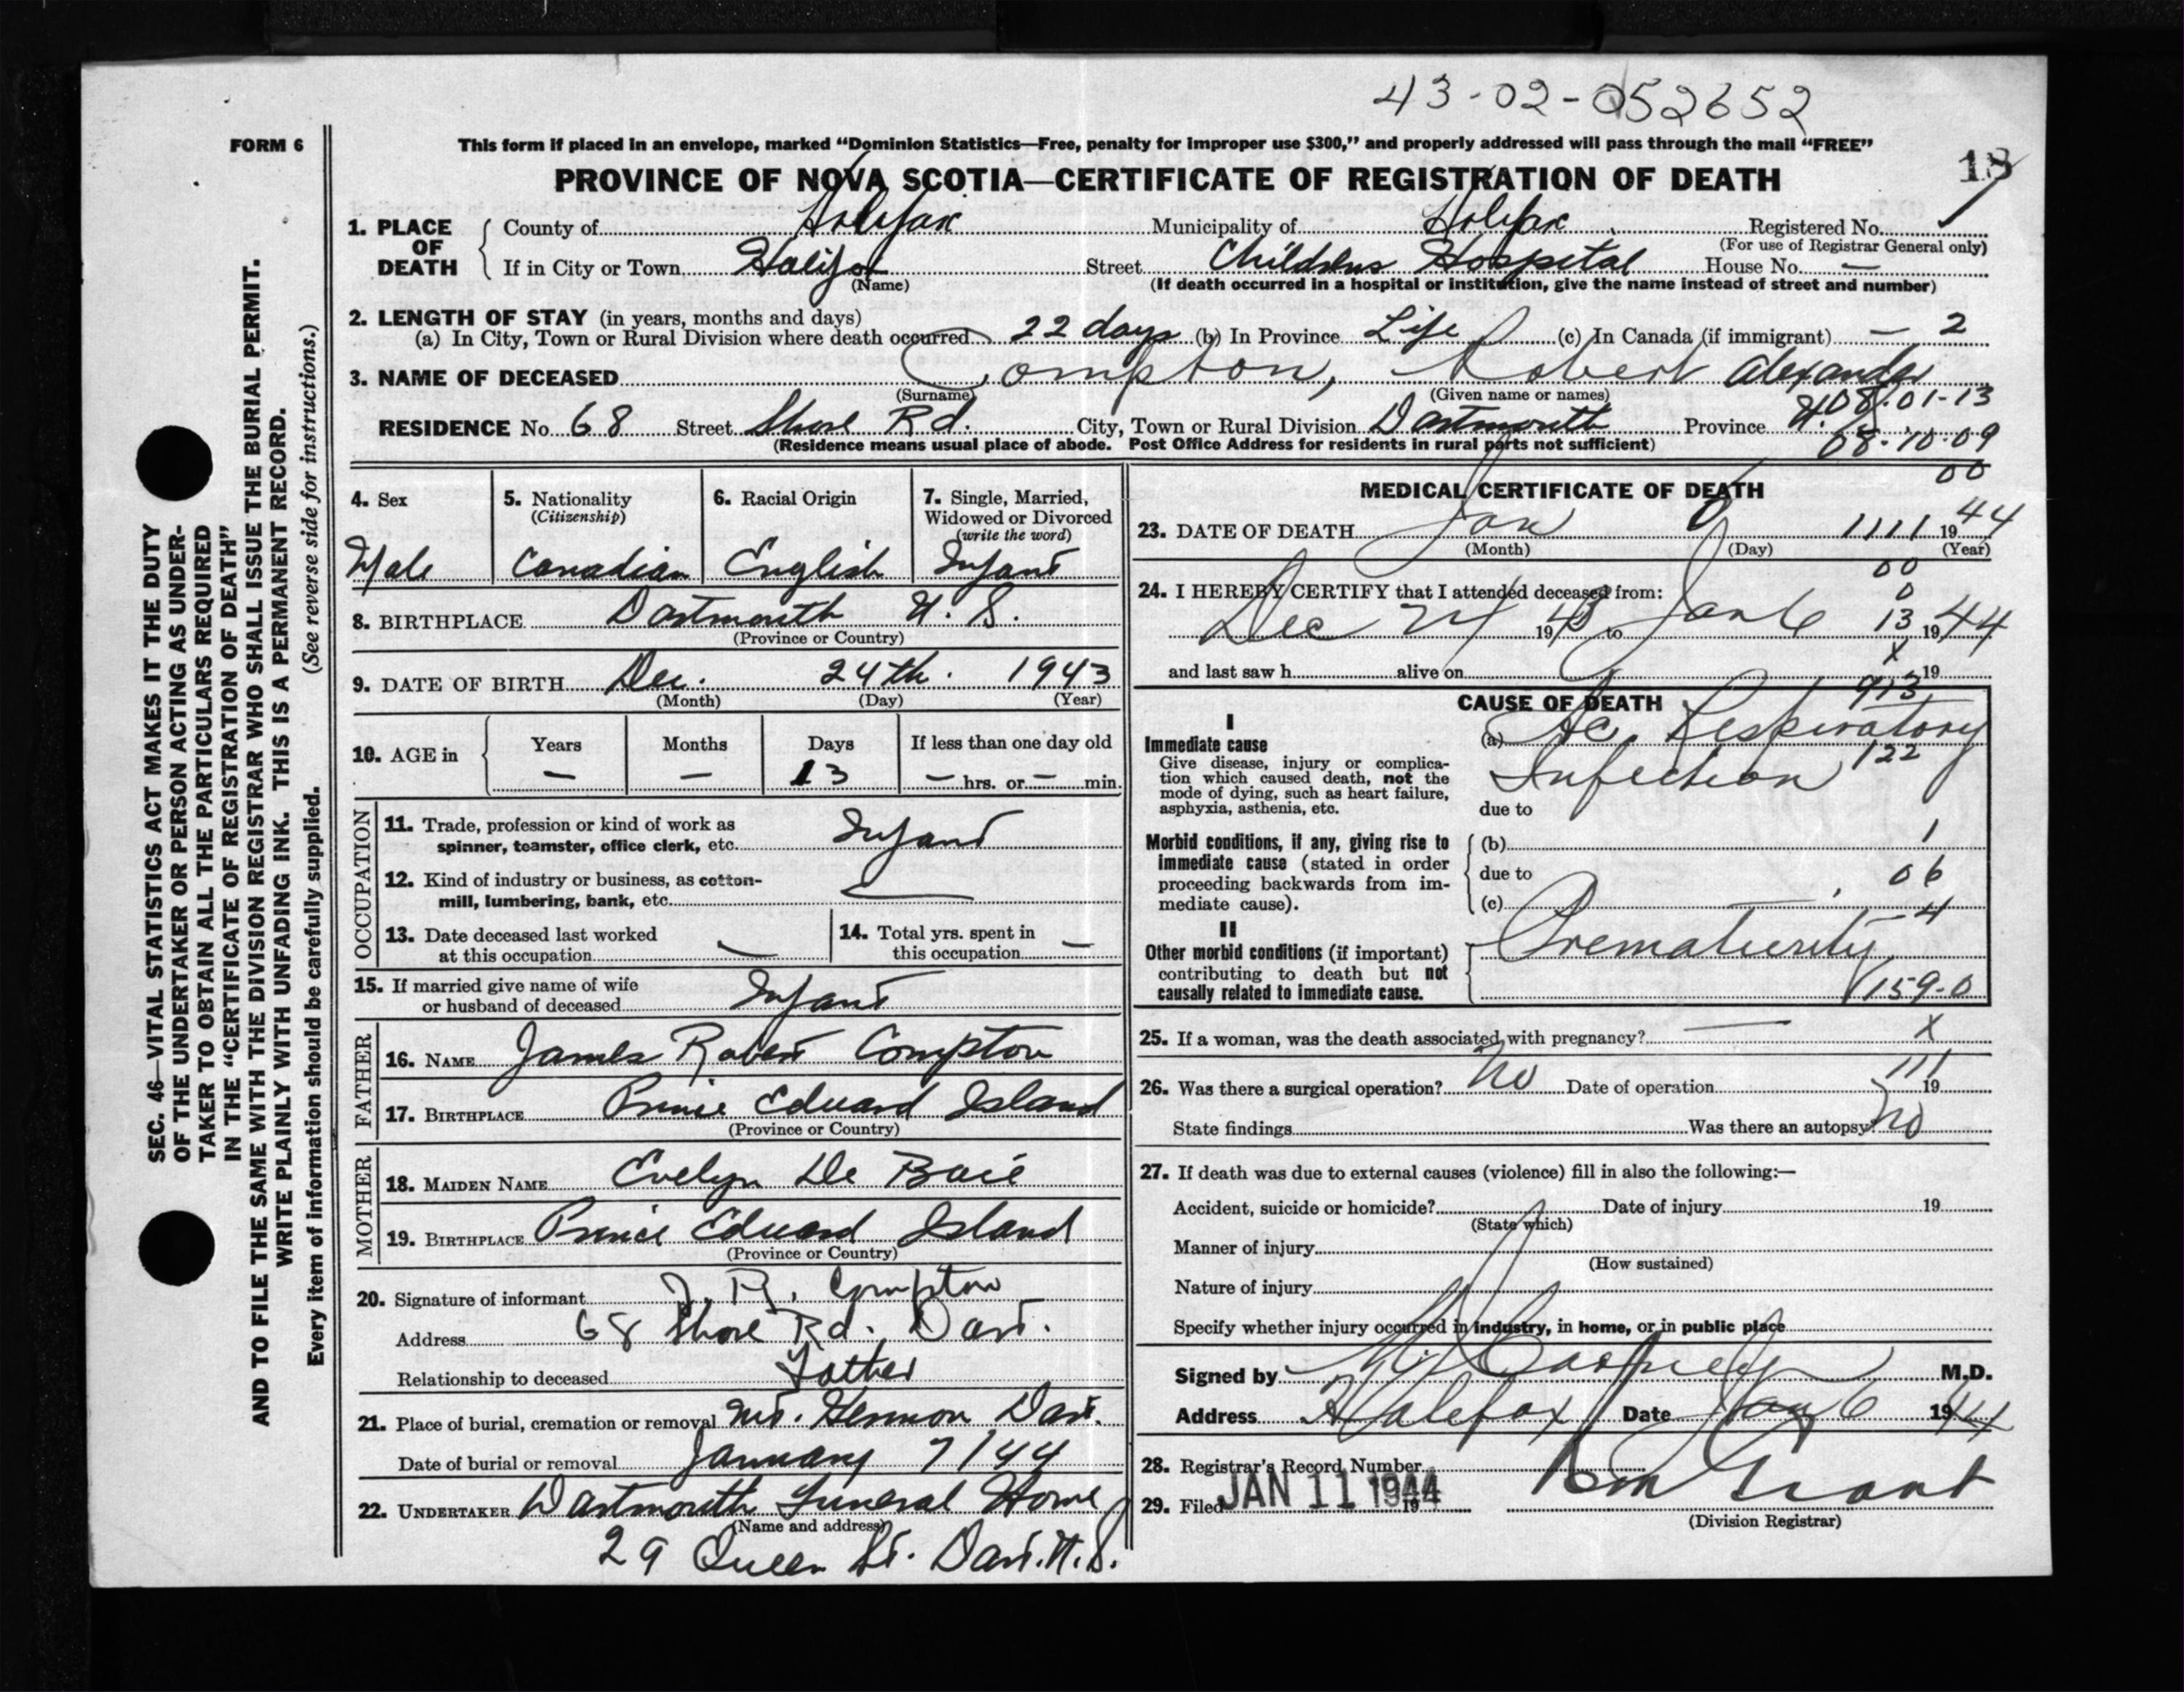 43-02-052652
FORM 6
This form if placed in an envelope, marked “Dominion Statistics—Free, penalty for improper use $300,” and properly addressed will pass through the mail “FREE”
PROVINCE OF NOVA SCOTIA—CERTIFICATE OF REGISTRATION OF DEATH
18
1. PLACE OF DEATH
County of Halifax Municipality of Halifax Registered No.
(For use of Registrar General only)
If in City or Town Halifax Street Childrens Hospital House No. —
(Name) (If death occurred in a hospital or institution, give the name instead of street and number)
2. LENGTH OF STAY (in years, months and days)
(a) In City, Town or Rural Division where death occurred 22 days (b) In Province Life (c) In Canada (if immigrant) — 2
3. NAME OF DECEASED Compton, Robert Alexander
(Surname) (Given name or names)
08-01-13
RESIDENCE No. 68 Street Shore Rd. City, Town or Rural Division Dartmouth Province N.S.
(Residence means usual place of abode. Post Office Address for residents in rural parts not sufficient)
08-10-09
00
4. Sex
Male
5. Nationality
(Citizenship)
Canadian
6. Racial Origin
English
7. Single, Married, Widowed or Divorced
(write the word)
Infant
8. BIRTHPLACE Dartmouth N.S.
(Province or Country)
9. DATE OF BIRTH Dec. 24th. 1943
(Month) (Day) (Year)
10. AGE in
Years Months Days If less than one day old
— — 13 — hrs. or — min.
OCCUPATION
11. Trade, profession or kind of work as
spinner, teamster, office clerk, etc. Infant
12. Kind of industry or business, as cotton-
mill, lumbering, bank, etc. —
13. Date deceased last worked
at this occupation —
14. Total yrs. spent in
this occupation —
15. If married give name of wife
or husband of deceased Infant
FATHER
16. NAME James Robert Compton
17. BIRTHPLACE Prince Edward Island
(Province or Country)
MOTHER
18. MAIDEN NAME Evelyn De Baie
19. BIRTHPLACE Prince Edward Island
(Province or Country)
20. Signature of informant J. R. Compton
Address 68 Shore Rd. Dart.
Relationship to deceased Father
21. Place of burial, cremation or removal Mt. Hermon Dart.
Date of burial or removal January 7/44
22. UNDERTAKER Dartmouth Funeral Home
(Name and address)
29 Queen St. Dart. N.S.
MEDICAL CERTIFICATE OF DEATH
23. DATE OF DEATH Jan 1111 1944
(Month) (Day) (Year)
00
0
24. I HEREBY CERTIFY that I attended deceased from:
Dec 24 1943 to Jan 6 13 1944
x
and last saw h alive on 19
913
CAUSE OF DEATH
I
Immediate cause
Give disease, injury or complica-
tion which caused death, not the
mode of dying, such as heart failure,
asphyxia, asthenia, etc.
(a) Ac. Respiratory
Infection 122
due to
Morbid conditions, if any, giving rise to
immediate cause (stated in order
proceeding backwards from im-
mediate cause).
(b) 1
due to 06
(c) -4
II
Other morbid conditions (if important)
contributing to death but not
causally related to immediate cause.
Prematurity
159-0
25. If a woman, was the death associated with pregnancy? — x
111
26. Was there a surgical operation? No Date of operation 19
State findings Was there an autopsy? No
27. If death was due to external causes (violence) fill in also the following:—
Accident, suicide or homicide? Date of injury 19
(State which)
Manner of injury
(How sustained)
Nature of injury
Specify whether injury occurred in industry, in home, or in public place
Signed by M.D.
Address Halifax Date Jan 6 1944
28. Registrar's Record Number
29. Filed JAN 11 1944 19
Grant
(Division Registrar)
SEC. 46—VITAL STATISTICS ACT MAKES IT THE DUTY
OF THE UNDERTAKER OR PERSON ACTING AS UNDER-
TAKER TO OBTAIN ALL THE PARTICULARS REQUIRED
IN THE “CERTIFICATE OF REGISTRATION OF DEATH”
AND TO FILE THE SAME WITH THE DIVISION REGISTRAR WHO SHALL ISSUE THE BURIAL PERMIT.
WRITE PLAINLY WITH UNFADING INK. THIS IS A PERMANENT RECORD.
Every item of information should be carefully supplied. (See reverse side for instructions.)